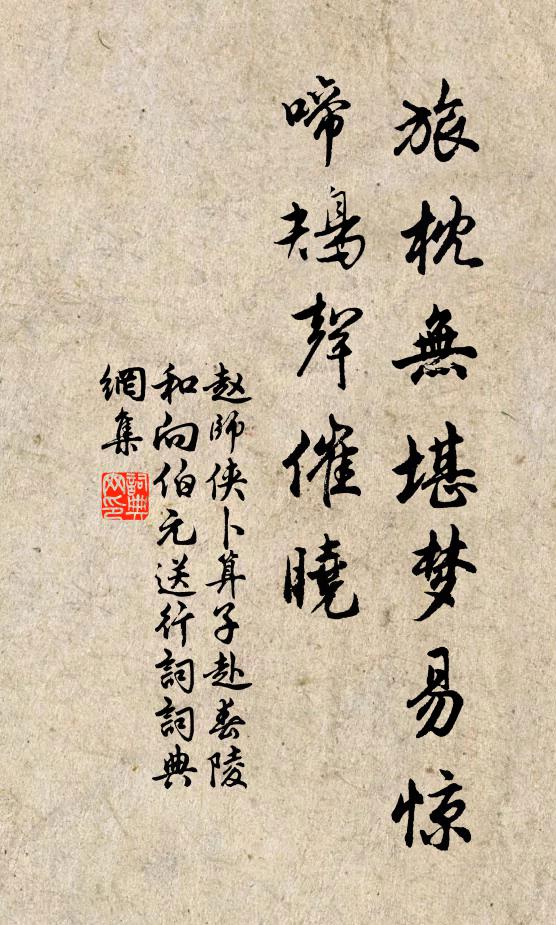 旅枕無堪梦易惊
啼鴂聲催曉
赵師侠卜算子赴春陵
和向伯元送行詞詞典
網集
詞典
网印